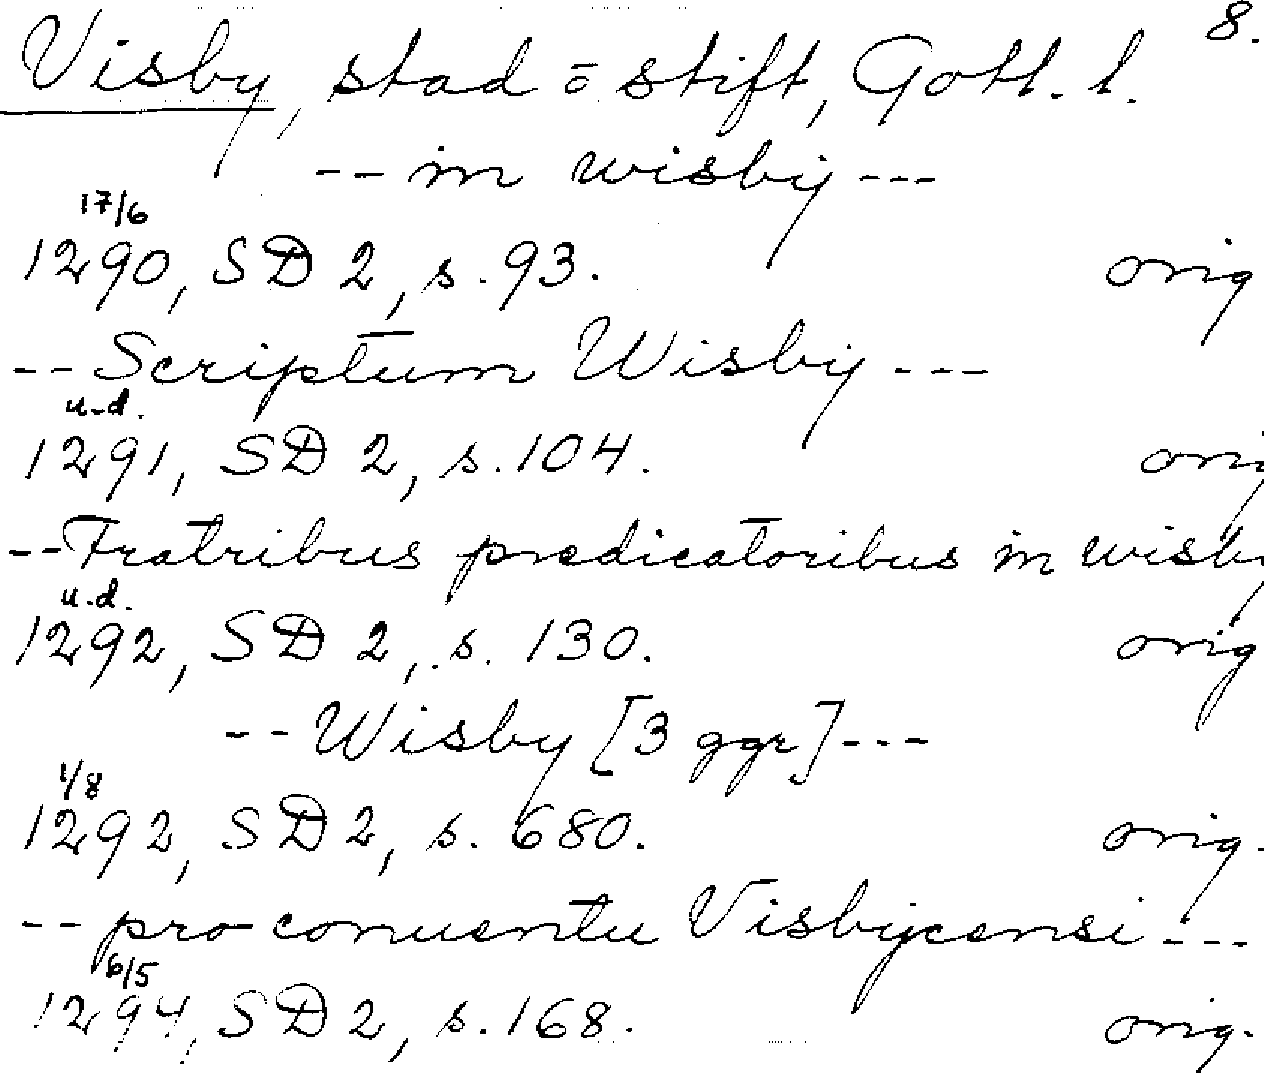 8.
Visby, stad o stift, Gotl. l.
-- in wisby ---
17/6
1290, SD 2, s. 93. orig
-- Scriptum Wisby ---
u.d.
1291, SD 2, s. 104. orig
-- Fratribus predicatoribus in wisby
u.d.
1292, SD 2, s. 130. orig
-- Wisby [3 ggr] ---
1/8
1292, SD 2, s. 680. orig.
-- pro conuentu Visbycensi ---
6/5
1294, SD 2, s. 168. orig.